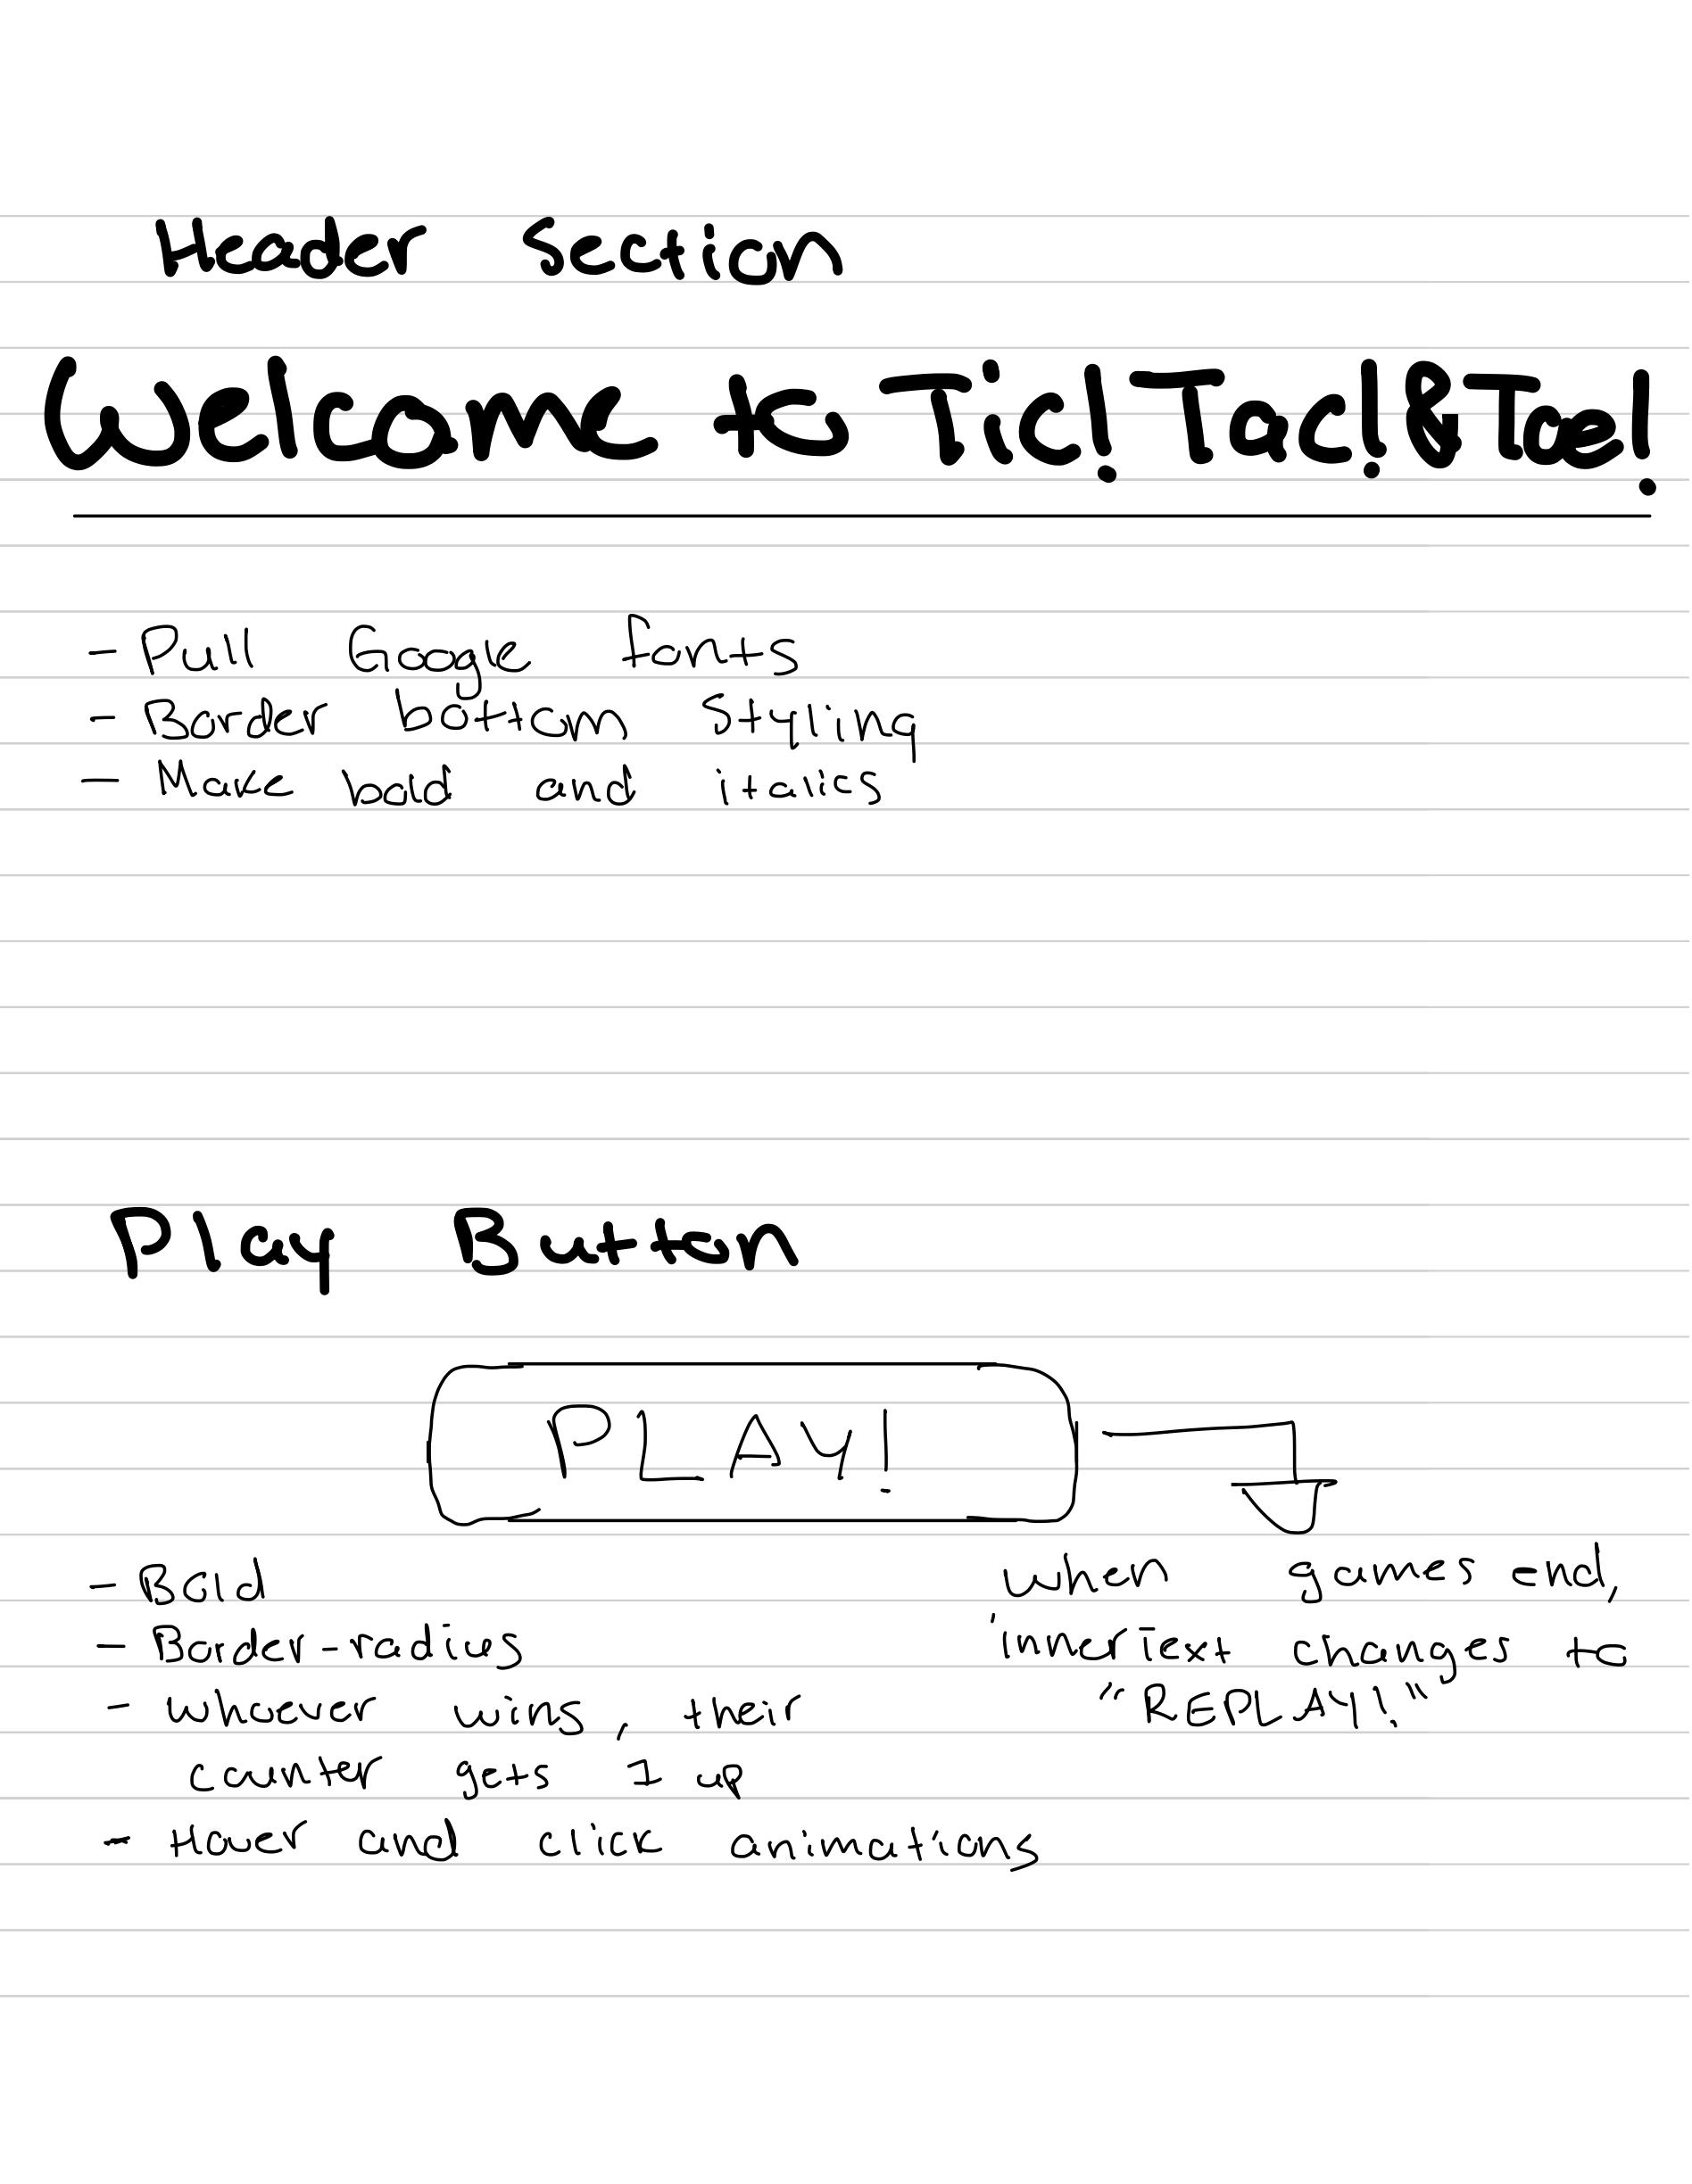 Header Section
Welcome to Tic! Tac! & Toe!
- Pull Google fonts
- Border bottom styling
- Make bold and italics
Play Button
PLAY!
- Bold
- Border-radius
- Whoever wins, their
counter gets 1 up
- Hover and click animations
when games end,
innerText changes to
"REPLAY!"